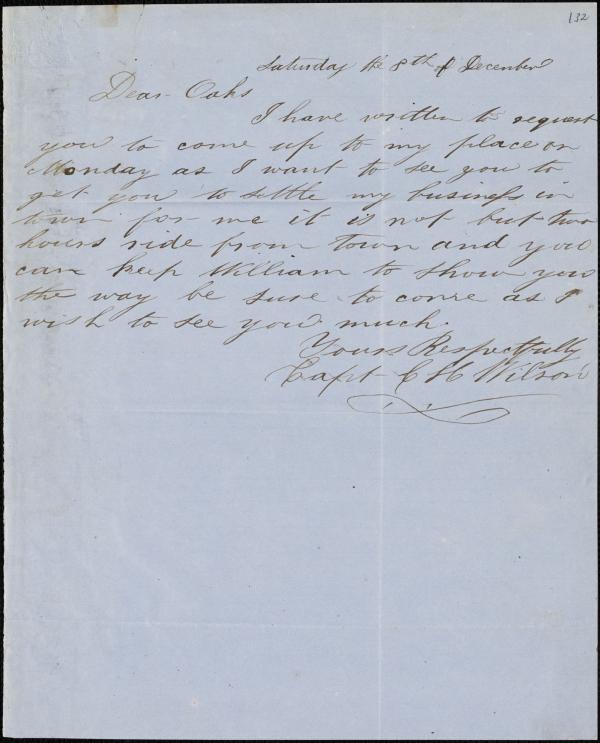 132
Saturday the 8th of December
Dear Oaks
I have written to request
you to come up to my place on
Monday as I want to see you to
get you to settle my business in
town for me it is not but two
hours ride from town and you
can keep William to show you
the way be sure to come as I
wish to see you much.
Yours Respectfully
Capt C H Wilson